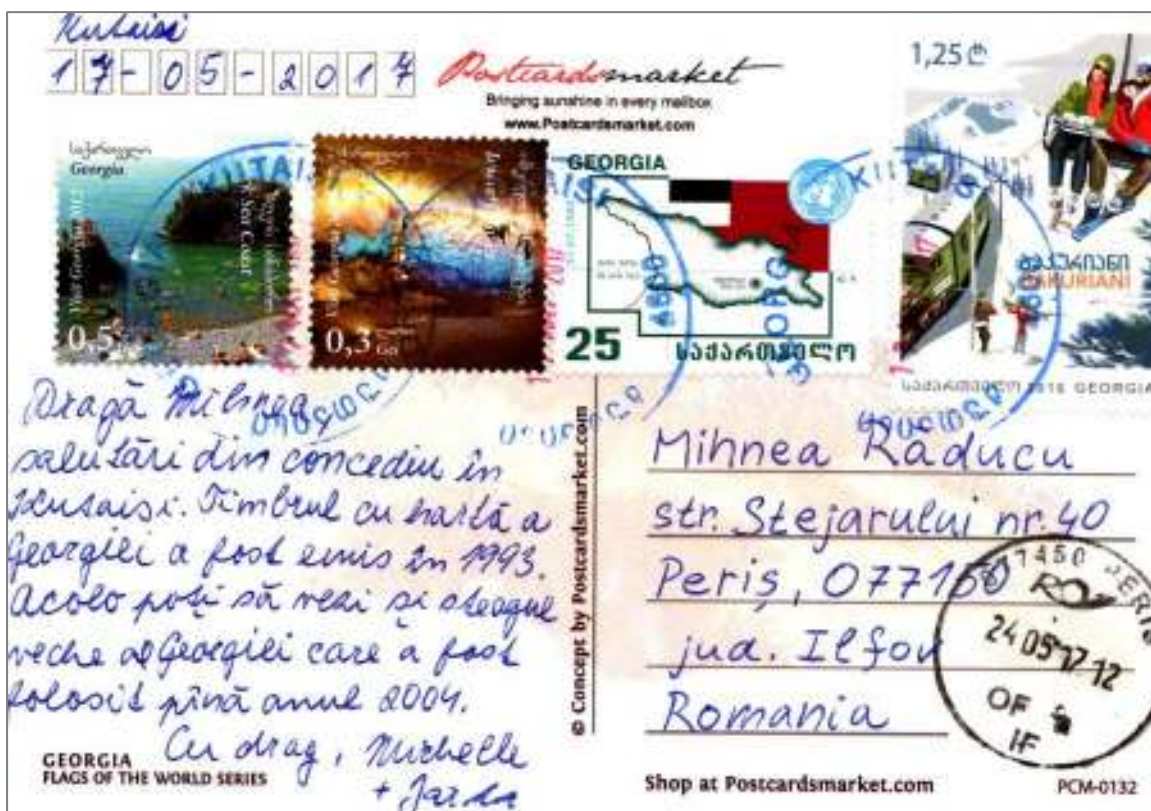 Kutaisi
17-05-2017
Postcardsmarket
Bringing sunshine in every mailbox
www.Postcardsmarket.com
1,25 ₾
საქართველო
Georgia
Black Sea Coast
Visit Georgia 2012
0,5
0,3
GEORGIA
25
ᲡᲐᲥᲐᲠᲗᲕᲔᲚᲝ
KIITAISI
4600
GEORG
ᲑᲐᲙᲣᲠᲘᲐᲜᲘ
BAKURIANI
ᲡᲐᲥᲐᲠᲗᲕᲔᲚᲝ 2016 GEORGIA
Dragă Mihnea
salutări din concediu în
Kutaisi. Timbrul cu hartă a
Georgiei a fost emis în 1993.
Acolo poți să vezi și steagul
veche al Georgiei care a fost
folosit pînă anul 2004.
Cu drag, Michelle
+ Jarda
© Concept by Postcardsmarket.com
Mihnea Răducu
str. Stejarului nr. 40
Periș, 077150
jud. Ilfov
Romania
PERIS
24 05 17 12
OF
IF
GEORGIA
FLAGS OF THE WORLD SERIES
Shop at Postcardsmarket.com
PCM-0132